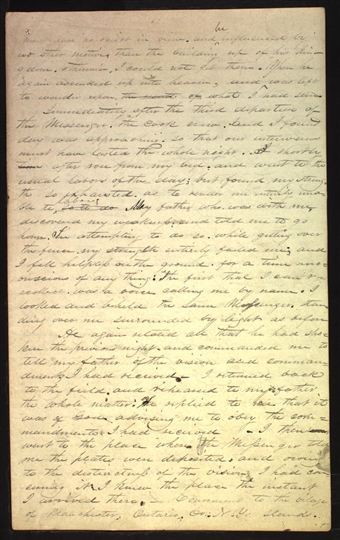 have no other object in view and influenced be
no other motive, than the building up of his king-
dom, otherwise, I could not get them. When he
again ascended up into heaven, and was left
to wonder what I had seen
Immediately after the third departure of
the Messenger, the cock crew, and I found
day was approaching: so that our interview
must have lasted the whole night. I shortly
after rose from my bed, and went to the
usual labors of the day; but, found my streng-
th so exhausted, as to render me
to. My father who was with me
discovered my weakness and told me to go
home. In attempting to do so, while getting over
the fence, my strength entirely failed me, and
I fell helpless on the ground, for a time unco-
nscious of any thing: The first that I ever
recollect, was a voice calling me by name. I
looked and beheld the same Messenger, stan-
ding over me surrounded by light as before
He again related all that he had spo-
ken the previous night, and commanded me to
tell my father of the vision and comman-
dments I had received. I returned back
to the field, and rehearsed to my father
the whole matter: He replied to me that it
was of God, advising me to obey the com-
mandments I had received. I then
went to the place where the Messenger told
me the plates were deposited, and owing
to the distinctness of the vision, I had con-
cerning it, I knew the place the instant
I arrived there. Convenient to the village
of Manchester, Ontario, Co. N.Y. stands